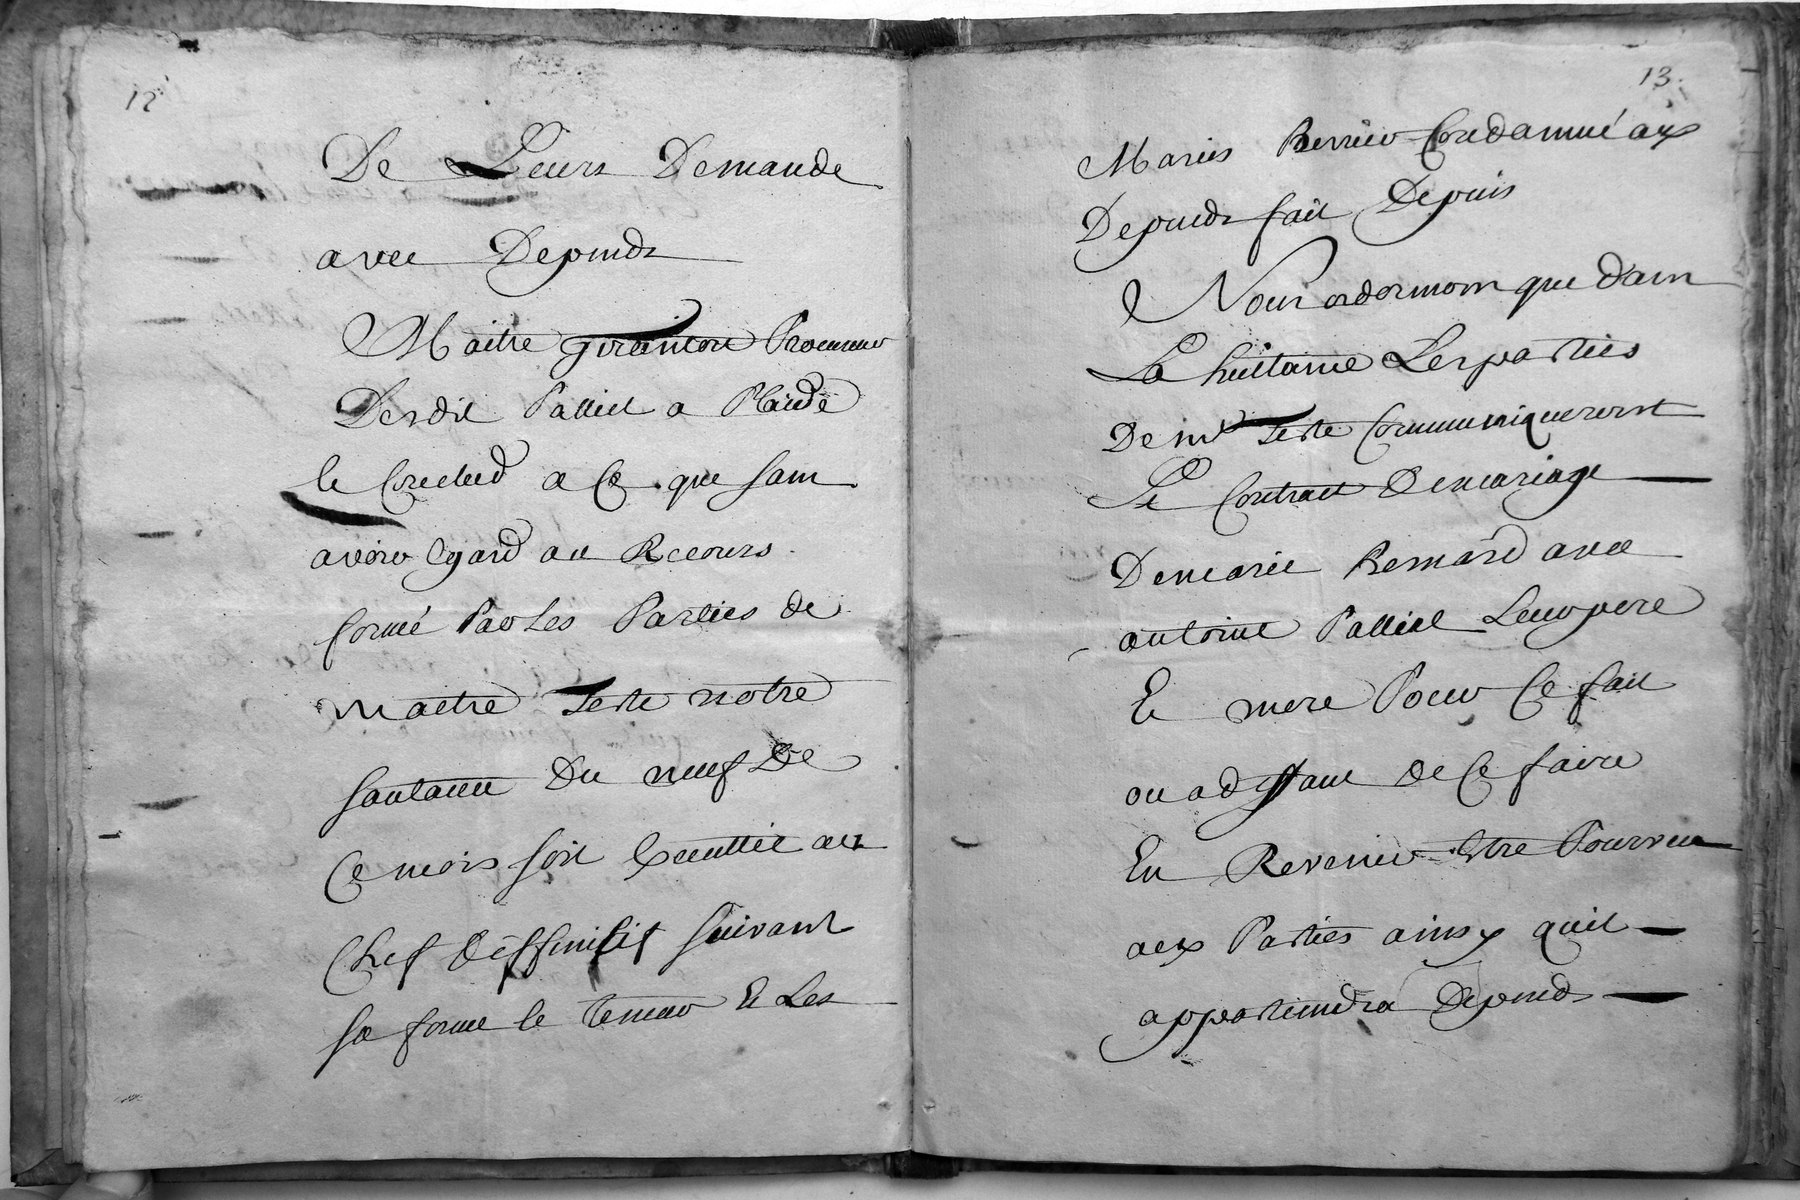 12
De Leurs Demande
avec Depends
Maitre girainton Procureur
Desdit Palliel a Plaidé
le Conclud a Ce que sans
avoir Egard au Recours
formé Par Les Parties de
maitre Teste notre
santance Du neuf De
Ce mois soit Exeuttée au
Chef deffinitif suivant
sa forme le teneur Et Les
13.
Mariés Berrier Condamné aux
Depends fait Depuis
Nous ordonnons que dans
La huitaine Les parties
De me Teste Communiqueront
Le Contract De mariage
De marie Bernard avec
antoine Palliel Leur pere
Et mere Pour Ce fait
ou a deffaut de Ce faire
En Revenir Etre Pourveu
aux Parties ainsy quil
appartiendra Depends